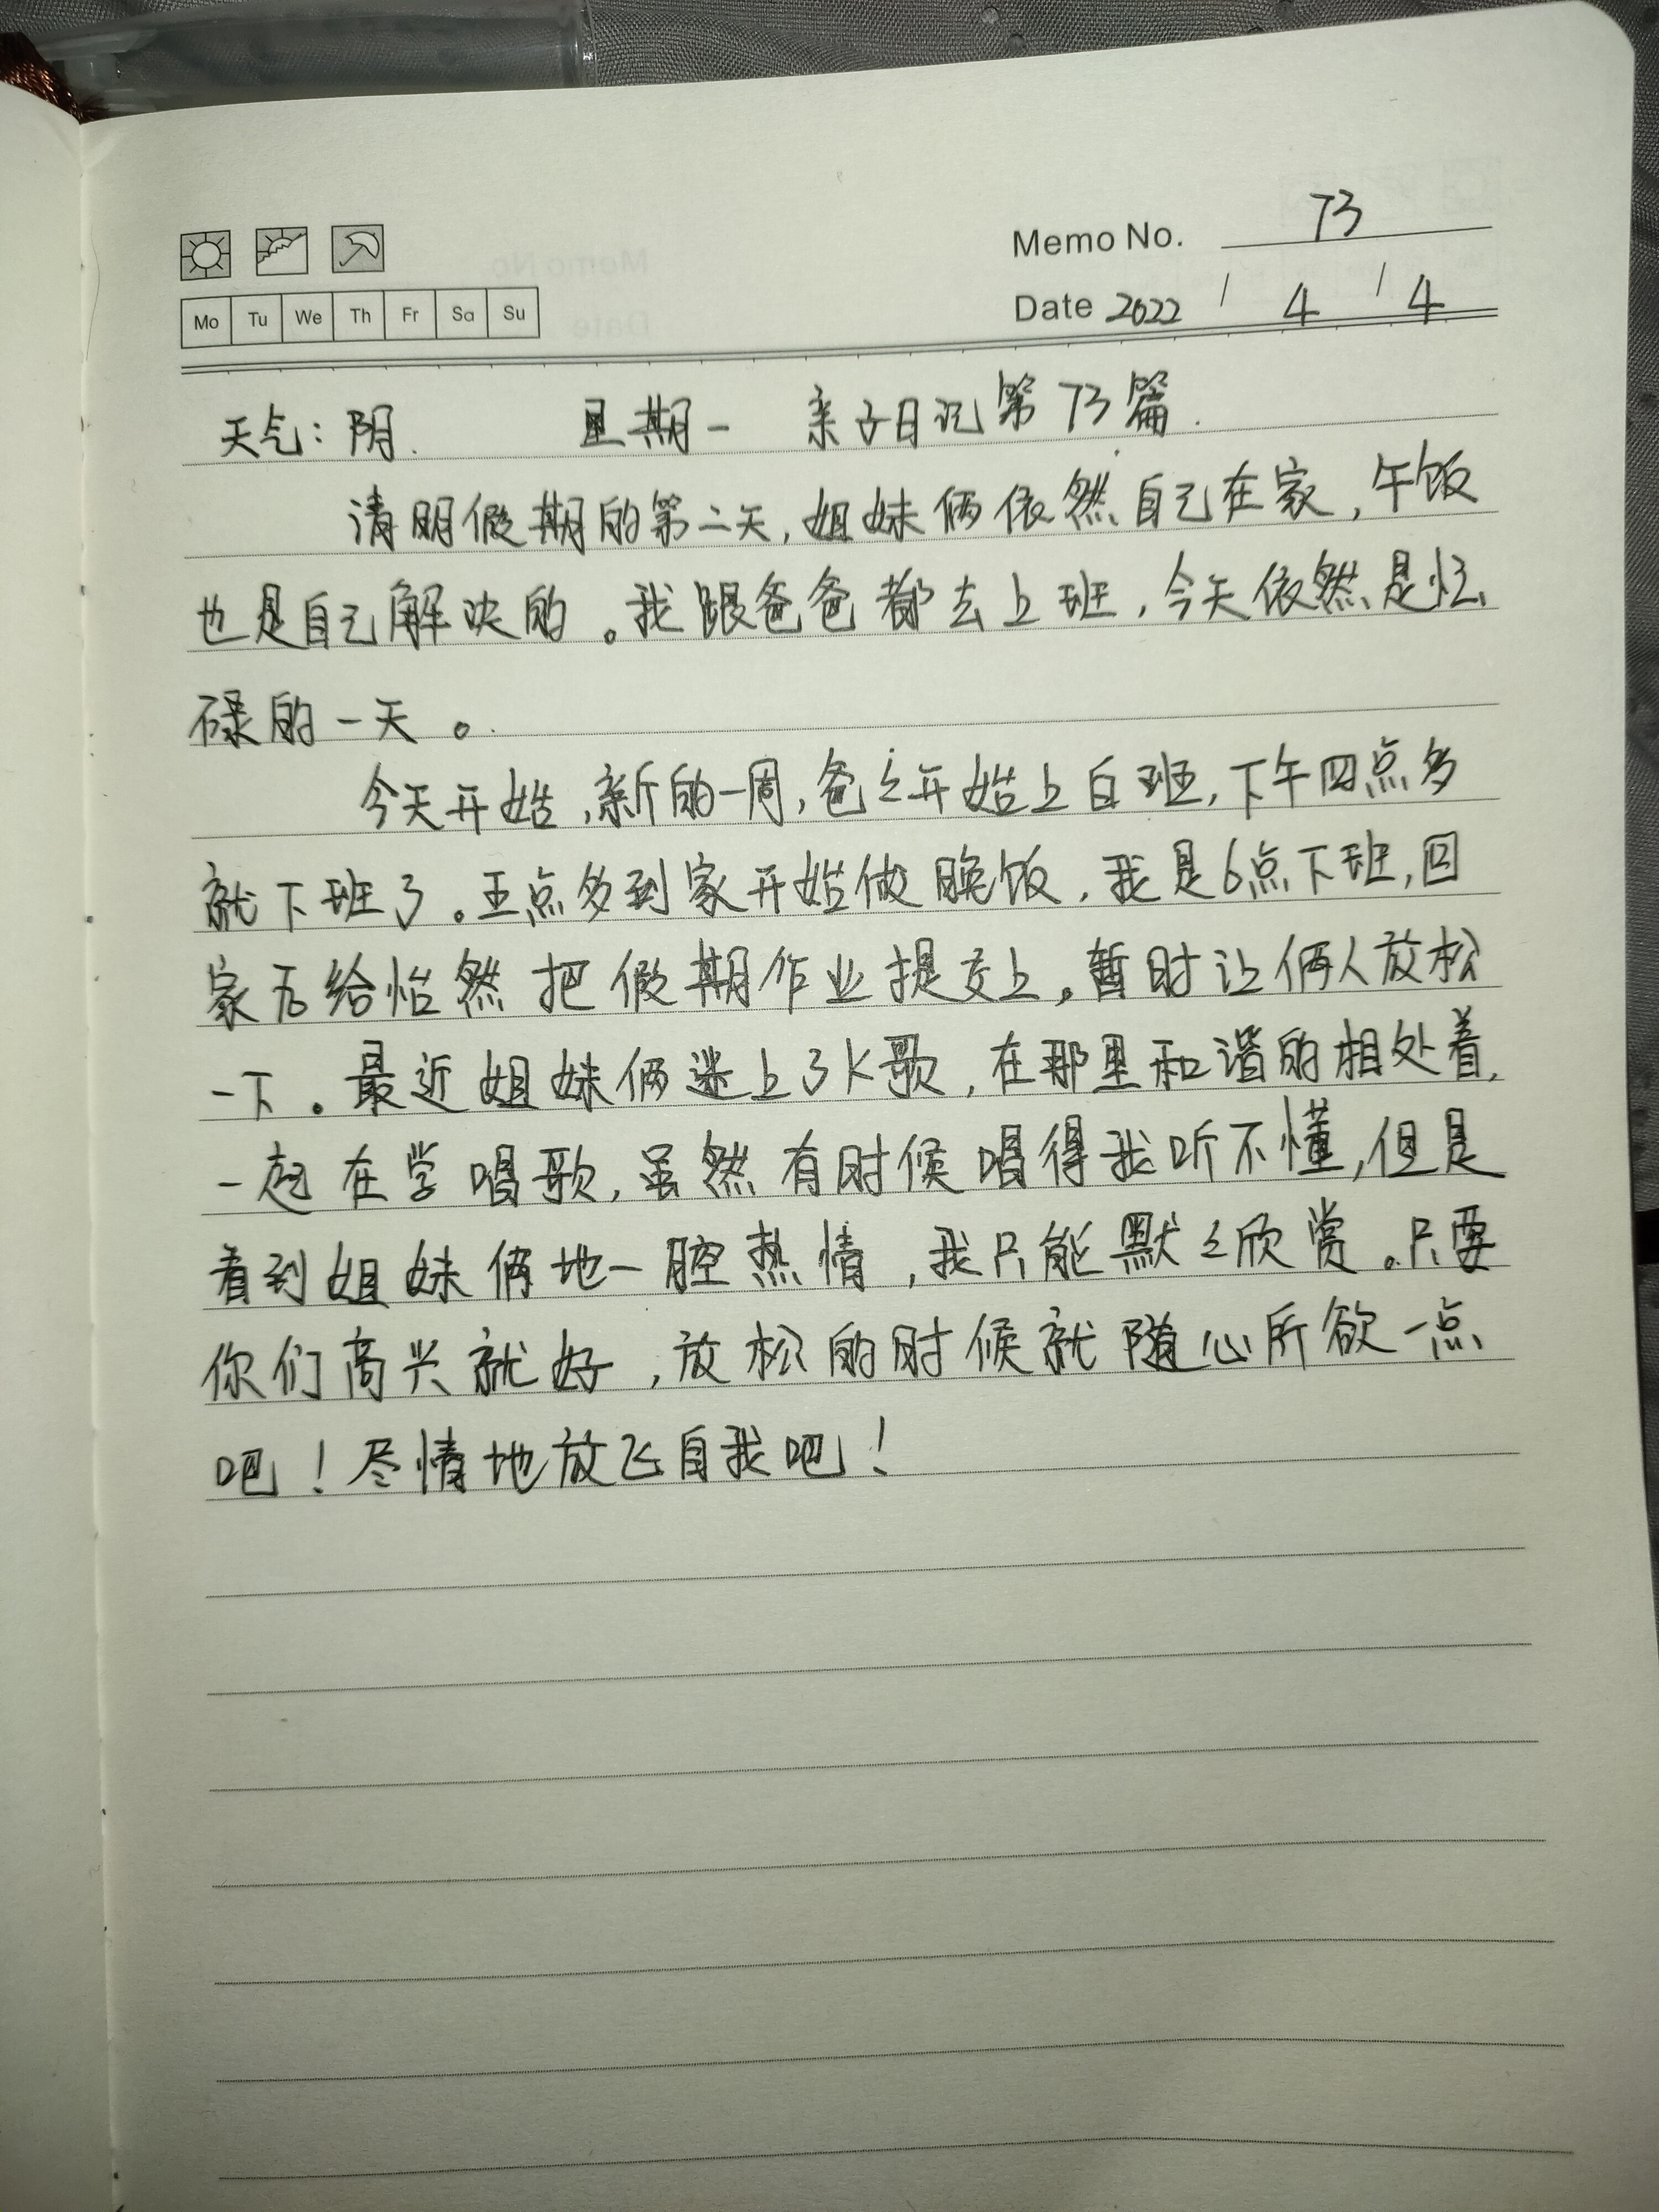 Memo No. 73
Mo Tu We Th Fr Sa Su
Date 2022 / 4 / 4
天气：阴. 星期一 亲子日记第73篇.
请明假期的第二天，姐妹俩依然自己在家，午饭
也是自己解决的。我跟爸爸都去上班，今天依然是忙
碌的一天。
今天开始，新的一周，爸々开始上白班，下午四点多
就下班了。五点多到家开始做晚饭，我是6点下班，回
家后给怡然把假期作业提交上。暂时让俩人放松
一下。最近姐妹俩迷上了K歌，在那里和谐的相处着，
一起在学唱歌，虽然有时候唱得我听不懂，但是
看到姐妹俩地一腔热情，我只能默々欣赏。只要
你们高兴就好，放松的时候就随心所欲一点
吧！尽情地放飞自我吧！